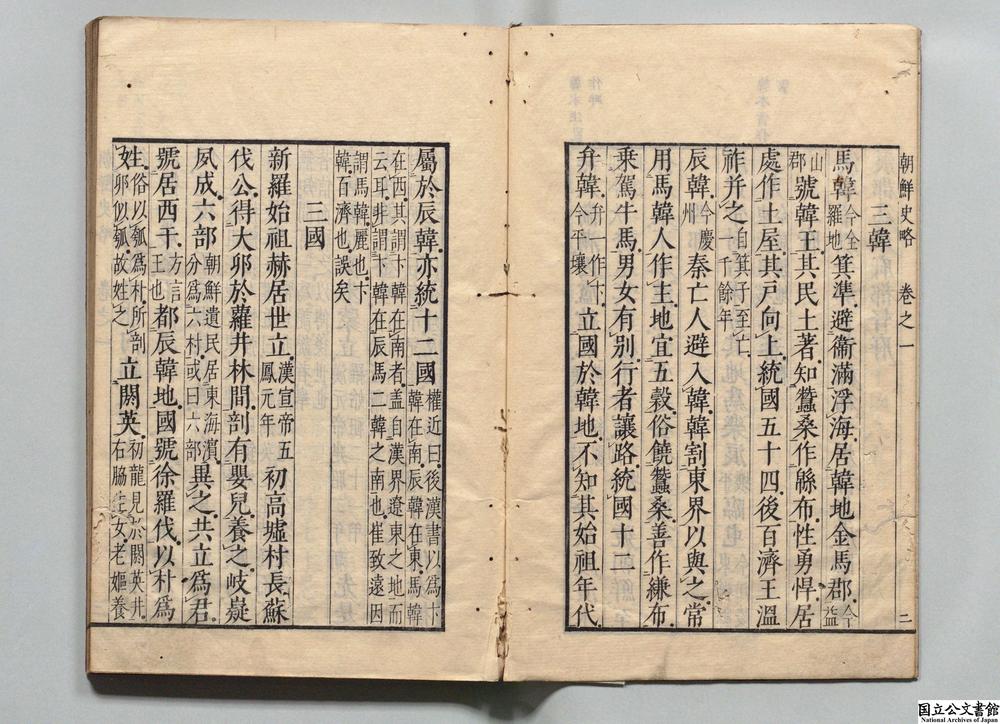 朝鮮史略 卷之一 二
三韓
馬韓今全羅地箕準避衞滿浮海居韓地金馬郡今益
山郡號韓王其民土著知蠶桑作緜布性勇悍居
處作土屋其戸向上統國五十四後百濟王溫
祚并之自箕子至亡一千餘年
辰韓今慶州秦亡人避入韓韓割東界以與之常
用馬韓人作主地宜五穀俗饒蠶桑善作縑布
乘駕牛馬男女有別行者讓路統國十二
弁韓弁一作卞今平壤立國於韓地不知其始祖年代
屬於辰韓亦統十二國權近曰後漢書以爲卞韓在南辰韓在東馬韓
在西其謂卞韓在南者盖自漢界遼東之地而云耳非謂卞韓在辰馬二韓之南也崔致遠因
謂馬韓麗也卞韓百濟也誤矣
三國
新羅始祖赫居世立漢宣帝五鳳元年初高墟村長蘇
伐公得大卵於蘿井林間剖有嬰兒養之岐嶷
夙成六部朝鮮遺民居東海濵分爲六村或曰六部異之共立爲君
號居西干方言王也都辰韓地國號徐羅伐以朴爲
姓俗以瓠爲朴所剖卵似瓠故姓之立閼英初龍見於閼英井右脇生女老嫗養
国立公文書館
National Archives of Japan